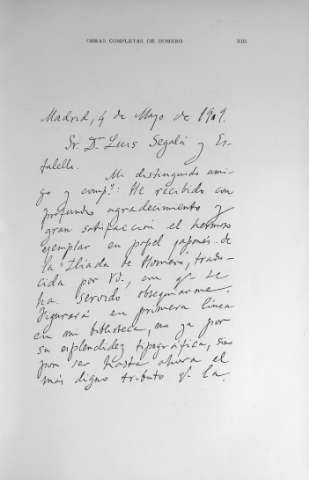 OBRAS COMPLETAS DE HOMERO XIII
Madrid, 4 de Mayo de 1909.
Sr. D. Luis Segalá y Es-
talella.
Mi distinguido ami-
go y comp.º: He recibido con
profundo agradecimiento y
gran satisfacción el hermoso
ejemplar en papel japonés de
la "Ilíada de Homero", tradu-
cida por Vd., con q.e se
ha servido obsequiarme.
Figurará en primera línea
en mi biblioteca, no ya por
su esplendidez tipográfica, sino
por ser hasta ahora el
más digno tributo q.e la